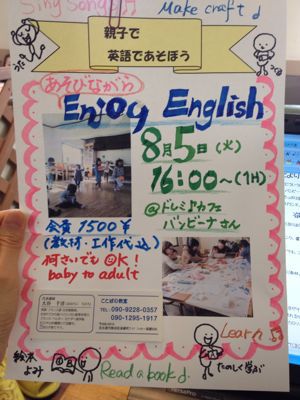 Sing Song♫
Make craft♪
親子で
英語であそぼう
うた
あそびながら
Enjoy English
8月5日(火)
16:00〜(1H)
@ドレミ♪カフェ
バンビーナさん
会費 1500¥
(教材・工作代込)
何さいでもOK!
baby to adult
ことばの教室
TEL:090-9228-0357
090-1295-1917
Learn♫
絵本
よみ
Read a book♪
たのしく学ぶ